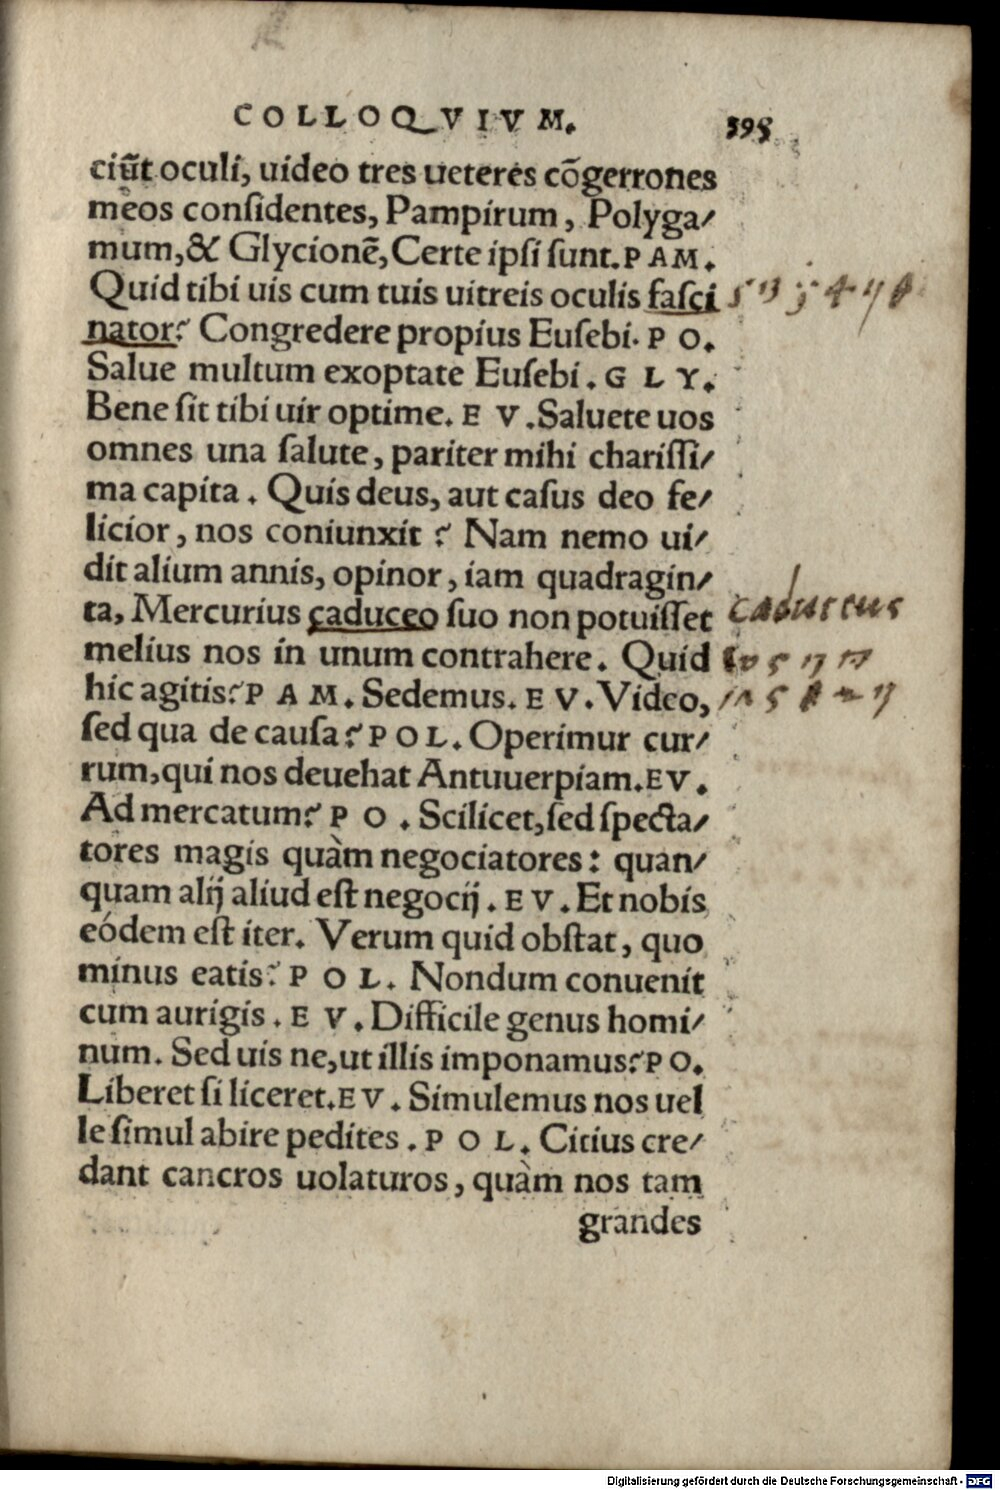 COLLOQVIVM. 395
ciũt oculi, uideo tres ueteres cõgerrones
meos considentes, Pampirum, Polyga/
mum, & Glycionẽ, Certe ipsi sunt. PAM.
Quid tibi uis cum tuis uitreis oculis fasci
nator? Congredere propius Eusebi. PO.
Salue multum exoptate Eusebi. GLY.
Bene sit tibi uir optime. EV. Saluete uos
omnes una salute, pariter mihi charissi/
ma capita. Quis deus, aut casus deo fe/
licior, nos coniunxit? Nam nemo ui/
dit alium annis, opinor, iam quadragin/
ta, Mercurius caduceo suo non potuisset
caduceus
melius nos in unum contrahere. Quid
hic agitis? PAM. Sedemus. EV. Video,
sed qua de causa? POL. Operimur cur/
rum, qui nos deuehat Antuuerpiam. EV.
Ad mercatum? PO. Scilicet, sed specta/
tores magis quàm negociatores: quan/
quam alij aliud est negocij. EV. Et nobis
eódem est iter. Verum quid obstat, quo
minus eatis? POL. Nondum conuenit
cum aurigis. EV. Difficile genus homi/
num. Sed uis ne, ut illis imponamus? PO.
Liberet si liceret. EV. Simulemus nos uel
le simul abire pedites. POL. Citius cre/
dant cancros uolaturos, quàm nos tam
grandes
Digitalisierung gefördert durch die Deutsche Forschungsgemeinschaft - DFG